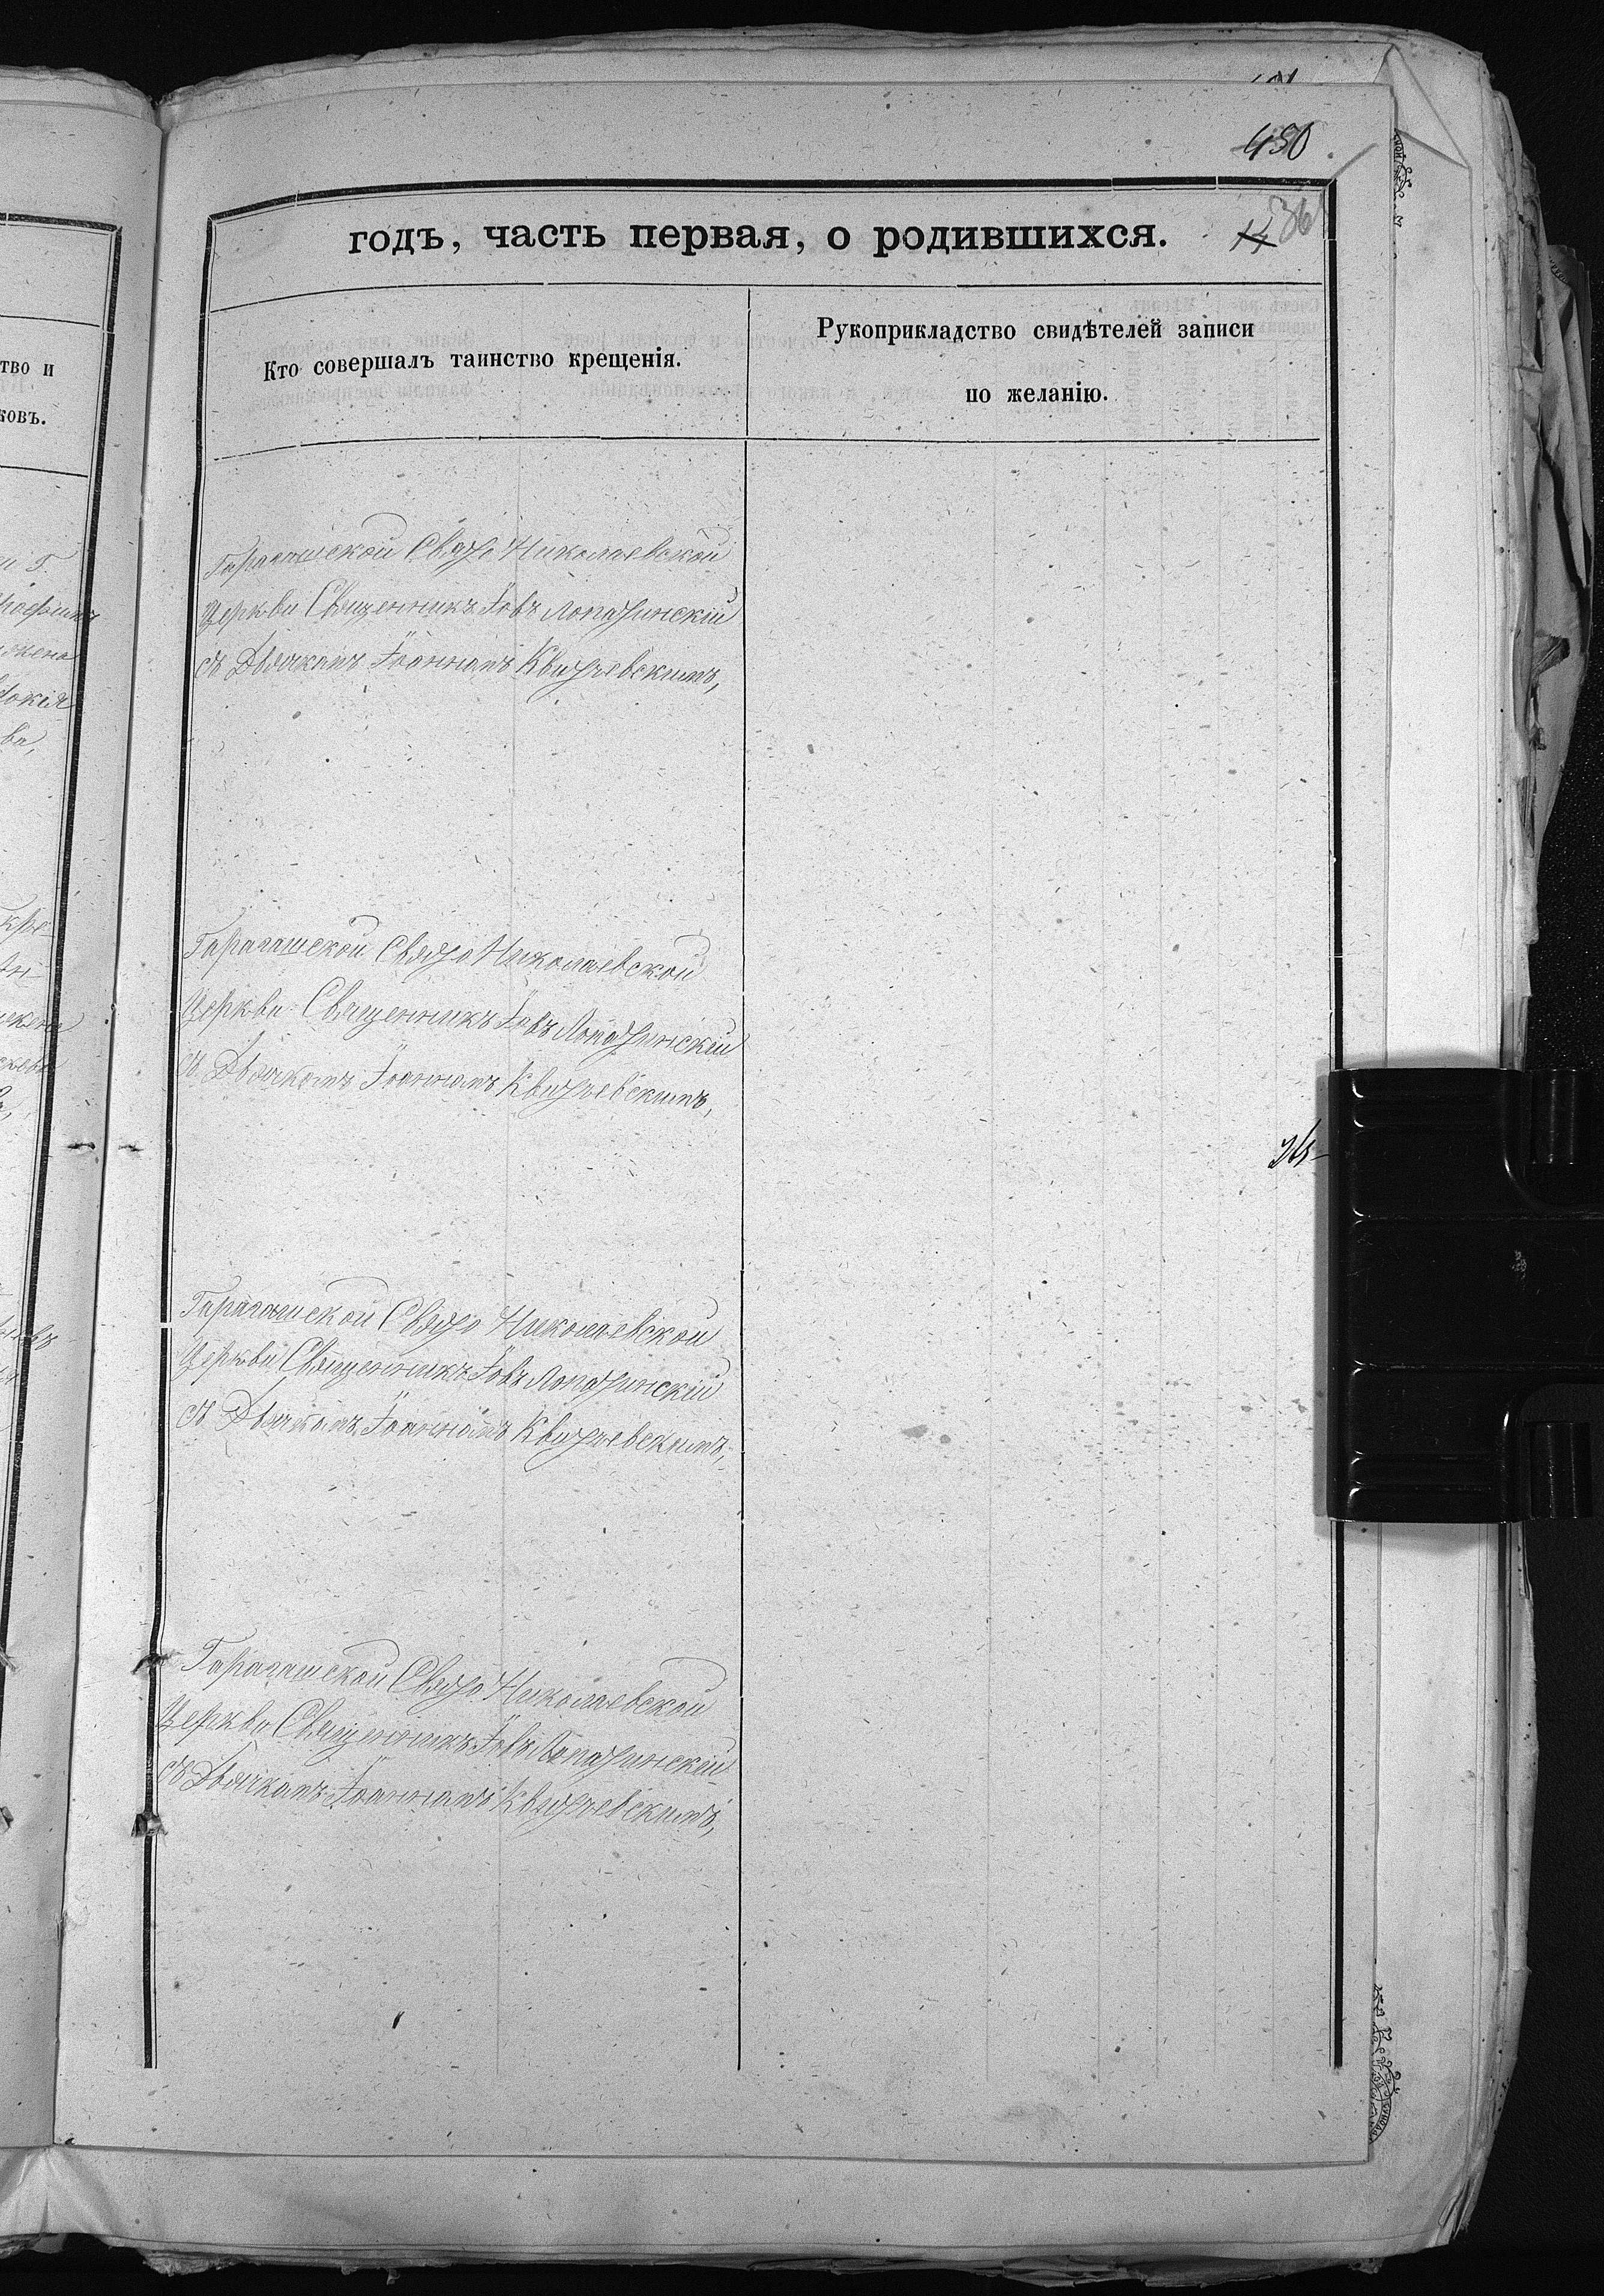 450
годъ, часть первая, о родившихся.
36
Кто совершалъ таинство крещенія.
Рукоприкладство свидѣтелей записи
по желанію.
тво и
ковъ.
Гарагашской Свято Николаевской
Церкви Священникъ Іовъ Лопатинскій
съ Дьячкомъ Іоанномъ Квятневскимъ,
Гарагашской Свято Николаевской
Церкви Священникъ Іовъ Лопатинскій
съ Дьячкомъ Іоанномъ Квятневскимъ,
Гарагашской Свято Николаевской
Церкви Священникъ Іовъ Лопатинскій
съ Дьячкомъ Іоанномъ Квятневскимъ,
Гарагашской Свято Николаевской
Церкви Священникъ Іовъ Лопатинскій
съ Дьячкомъ Іоанномъ Квятневскимъ,